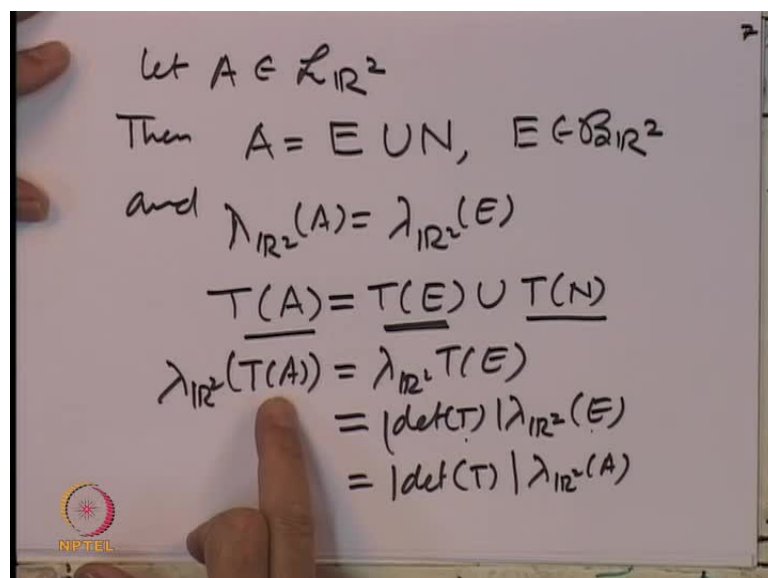 7
Let A ∈ ℒ_ℝ²
Then A = E ∪ N, E ∈ ℬ_ℝ²
and λ_ℝ²(A) = λ_ℝ²(E)
T(A) = T(E) ∪ T(N)
λ_ℝ²(T(A)) = λ_ℝ² T(E)
= |det(T)| λ_ℝ²(E)
= |det(T)| λ_ℝ²(A)
NPTEL